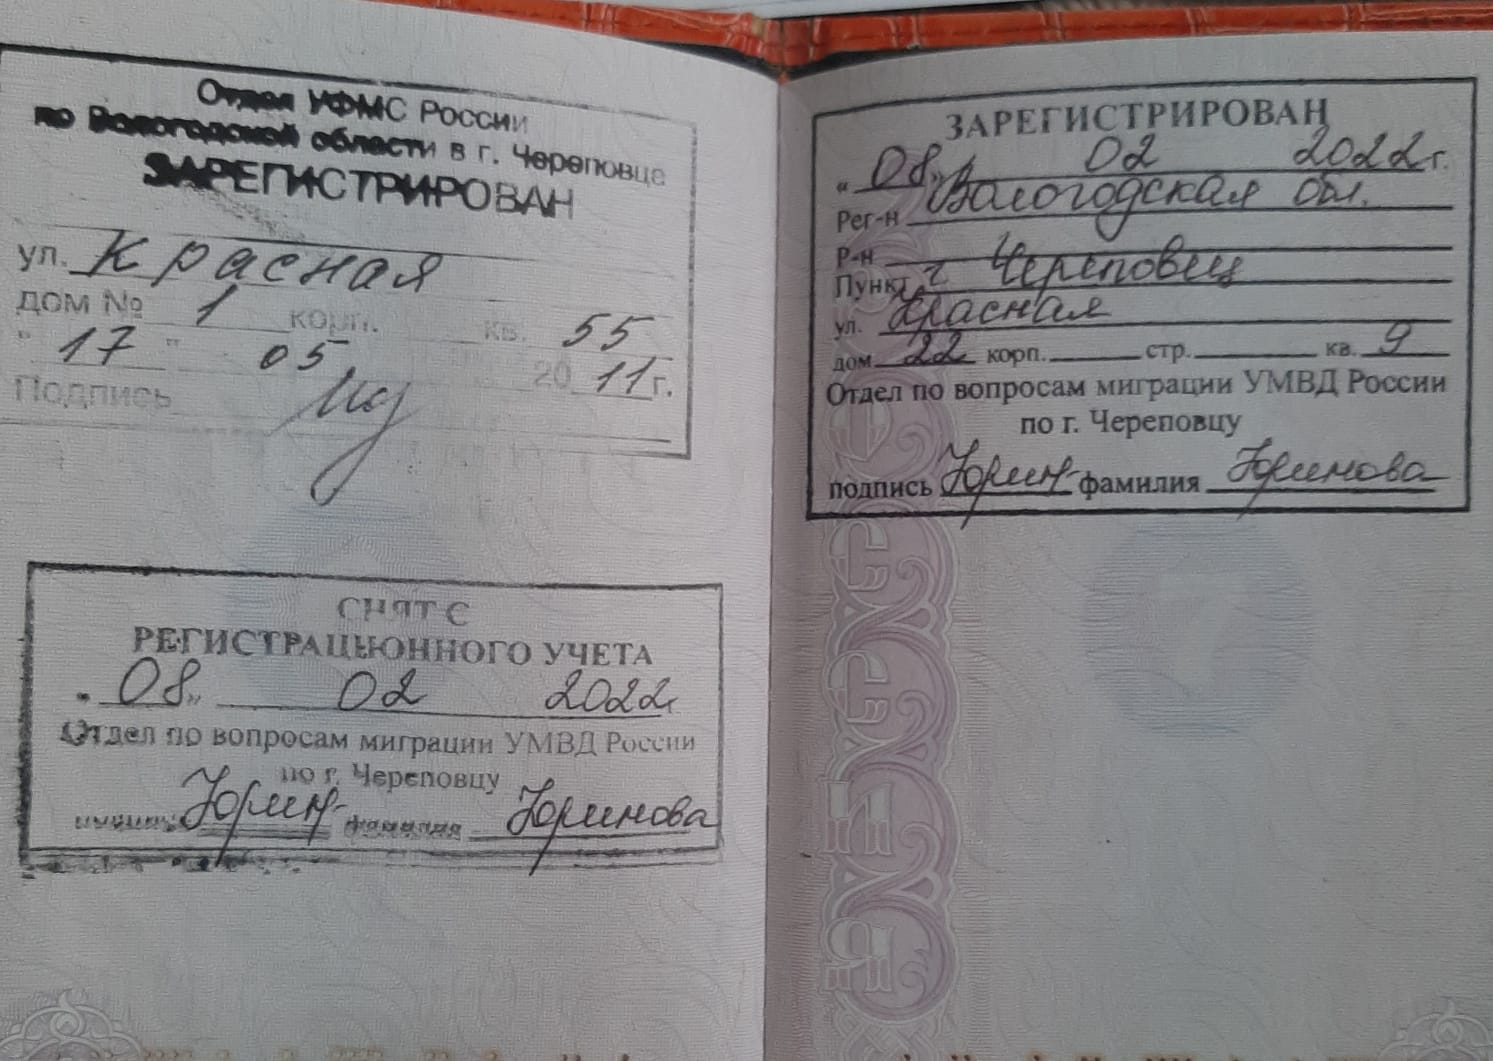 Отдел УФМС России
по Вологодской области в г. Череповце
ЗАРЕГИСТРИРОВАН
ул. Красная
дом № 1 корп. кв. 55
" 17 " 05 2011 г.
Подпись
СНЯТ С
РЕГИСТРАЦИОННОГО УЧЕТА
"08" 02 2022 г.
Отдел по вопросам миграции УМВД России
по г. Череповцу
подпись фамилия Юринова
ЗАРЕГИСТРИРОВАН
"08" 02 2022 г.
Рег-н Вологодская обл.
Р-н
Пункт г Череповец
ул. Красная
дом 22 корп. стр. кв. 9
Отдел по вопросам миграции УМВД России
по г. Череповцу
подпись фамилия Юринова